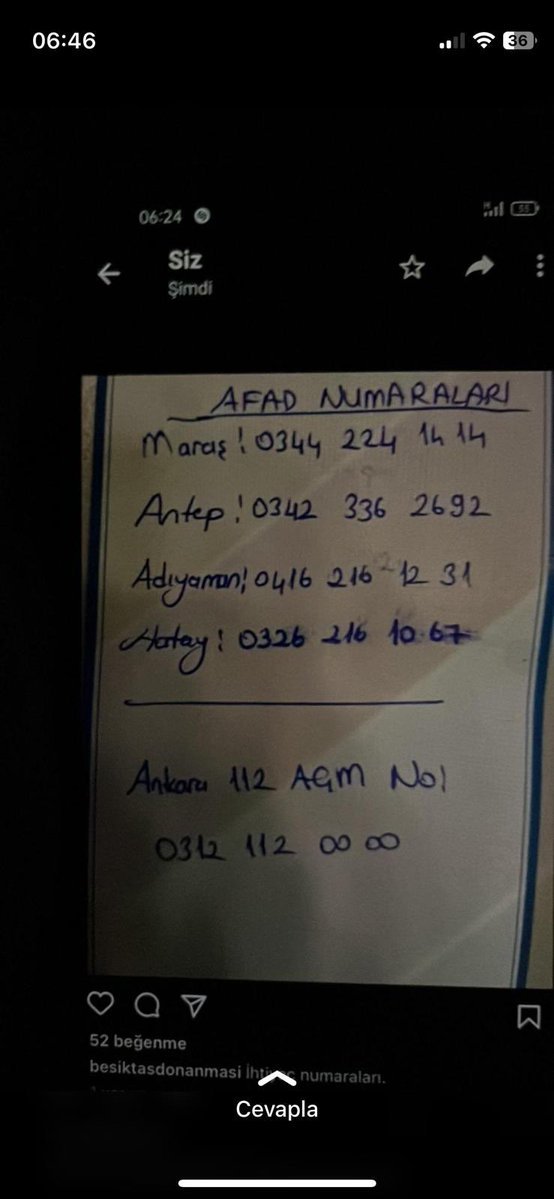 06:46
36
06:24
55
Siz
Şimdi
AFAD NUMARALARI
Maraş: 0344 224 14 14
Antep: 0342 336 2692
Adıyaman: 0416 216 12 31
Hatay: 0326 216 10 67
Ankara 112 AÇM No:
0312 112 00 00
52 beğenme
besiktasdonanmasi İhtiyaç numaraları.
Cevapla